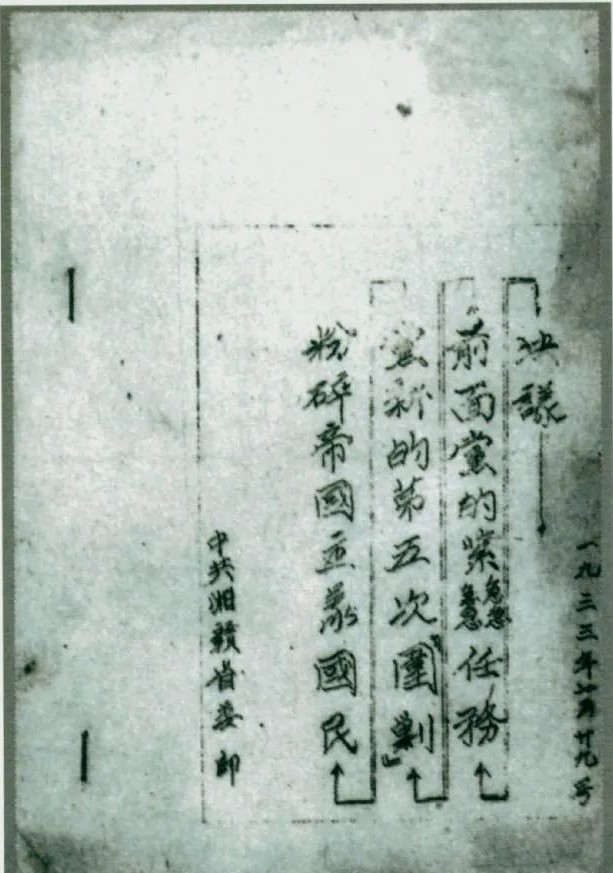 粉碎帝國主義國民
黨新的第五次"圍剿"
前面黨的緊急任務
決議
一九三三年七月廿九号
中共湘贛省委印